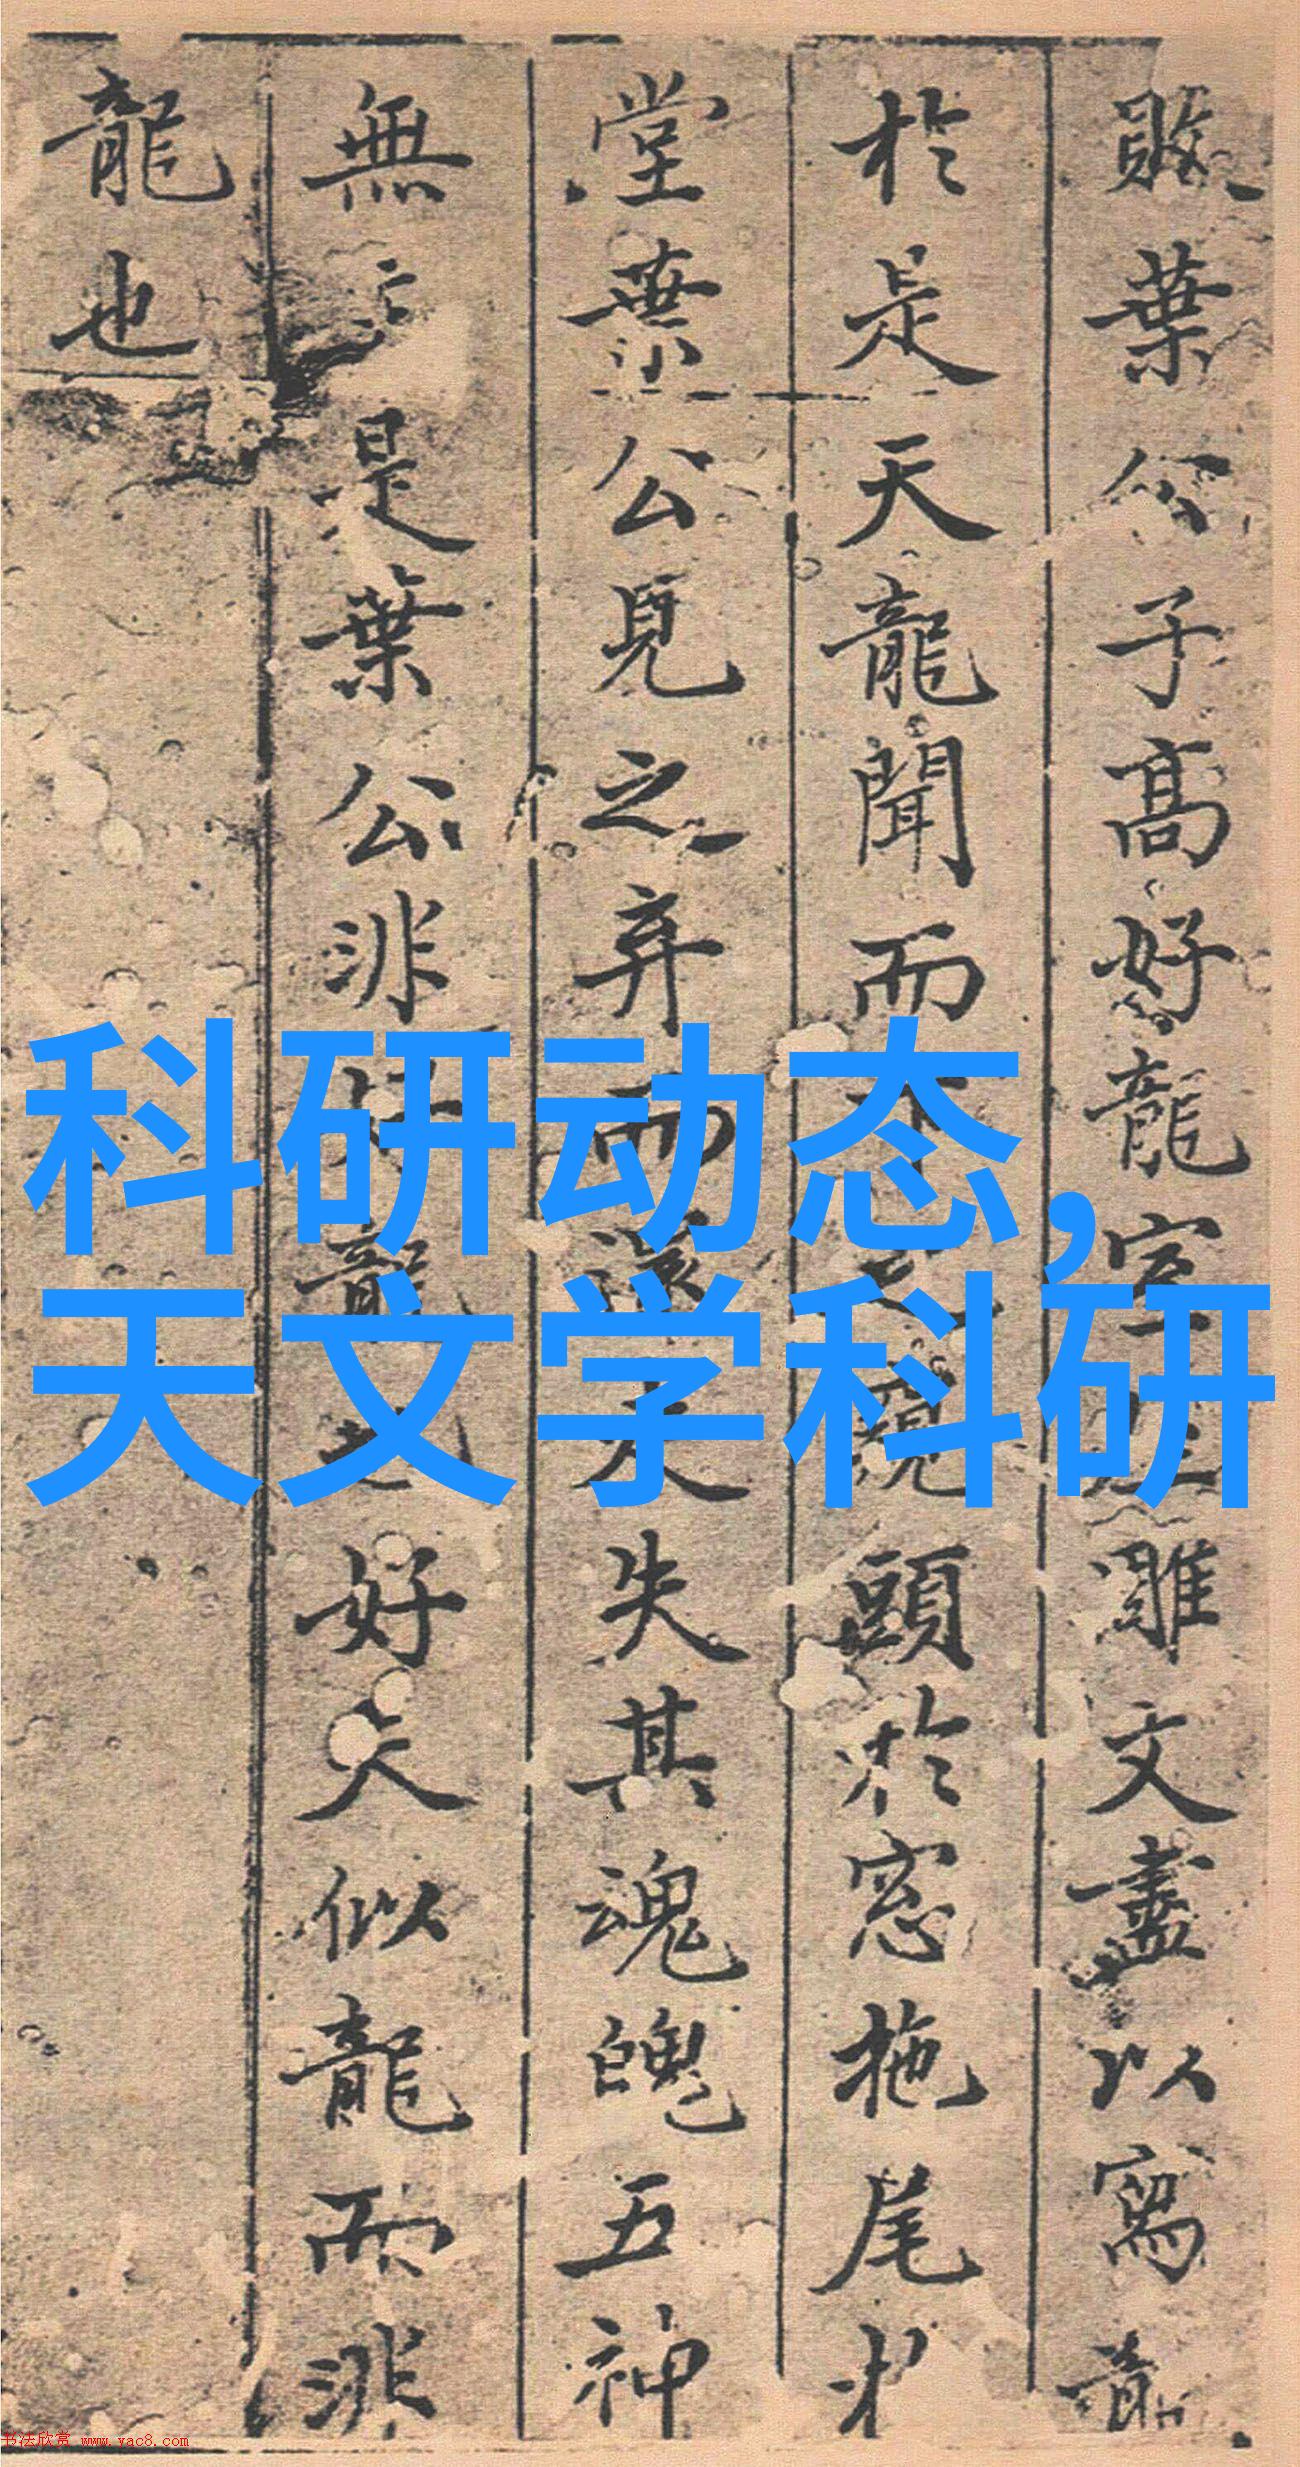 葉公子高好龍室雕文盡以寫龍
於是天龍聞而窺頭於窓拖尾
堂葉公見之弃而還走失其魂魄五神
無主是葉公非好龍也好夫似龍而非
龍也
科研动态,
天文学科研
书法欣赏 www.yac8.com